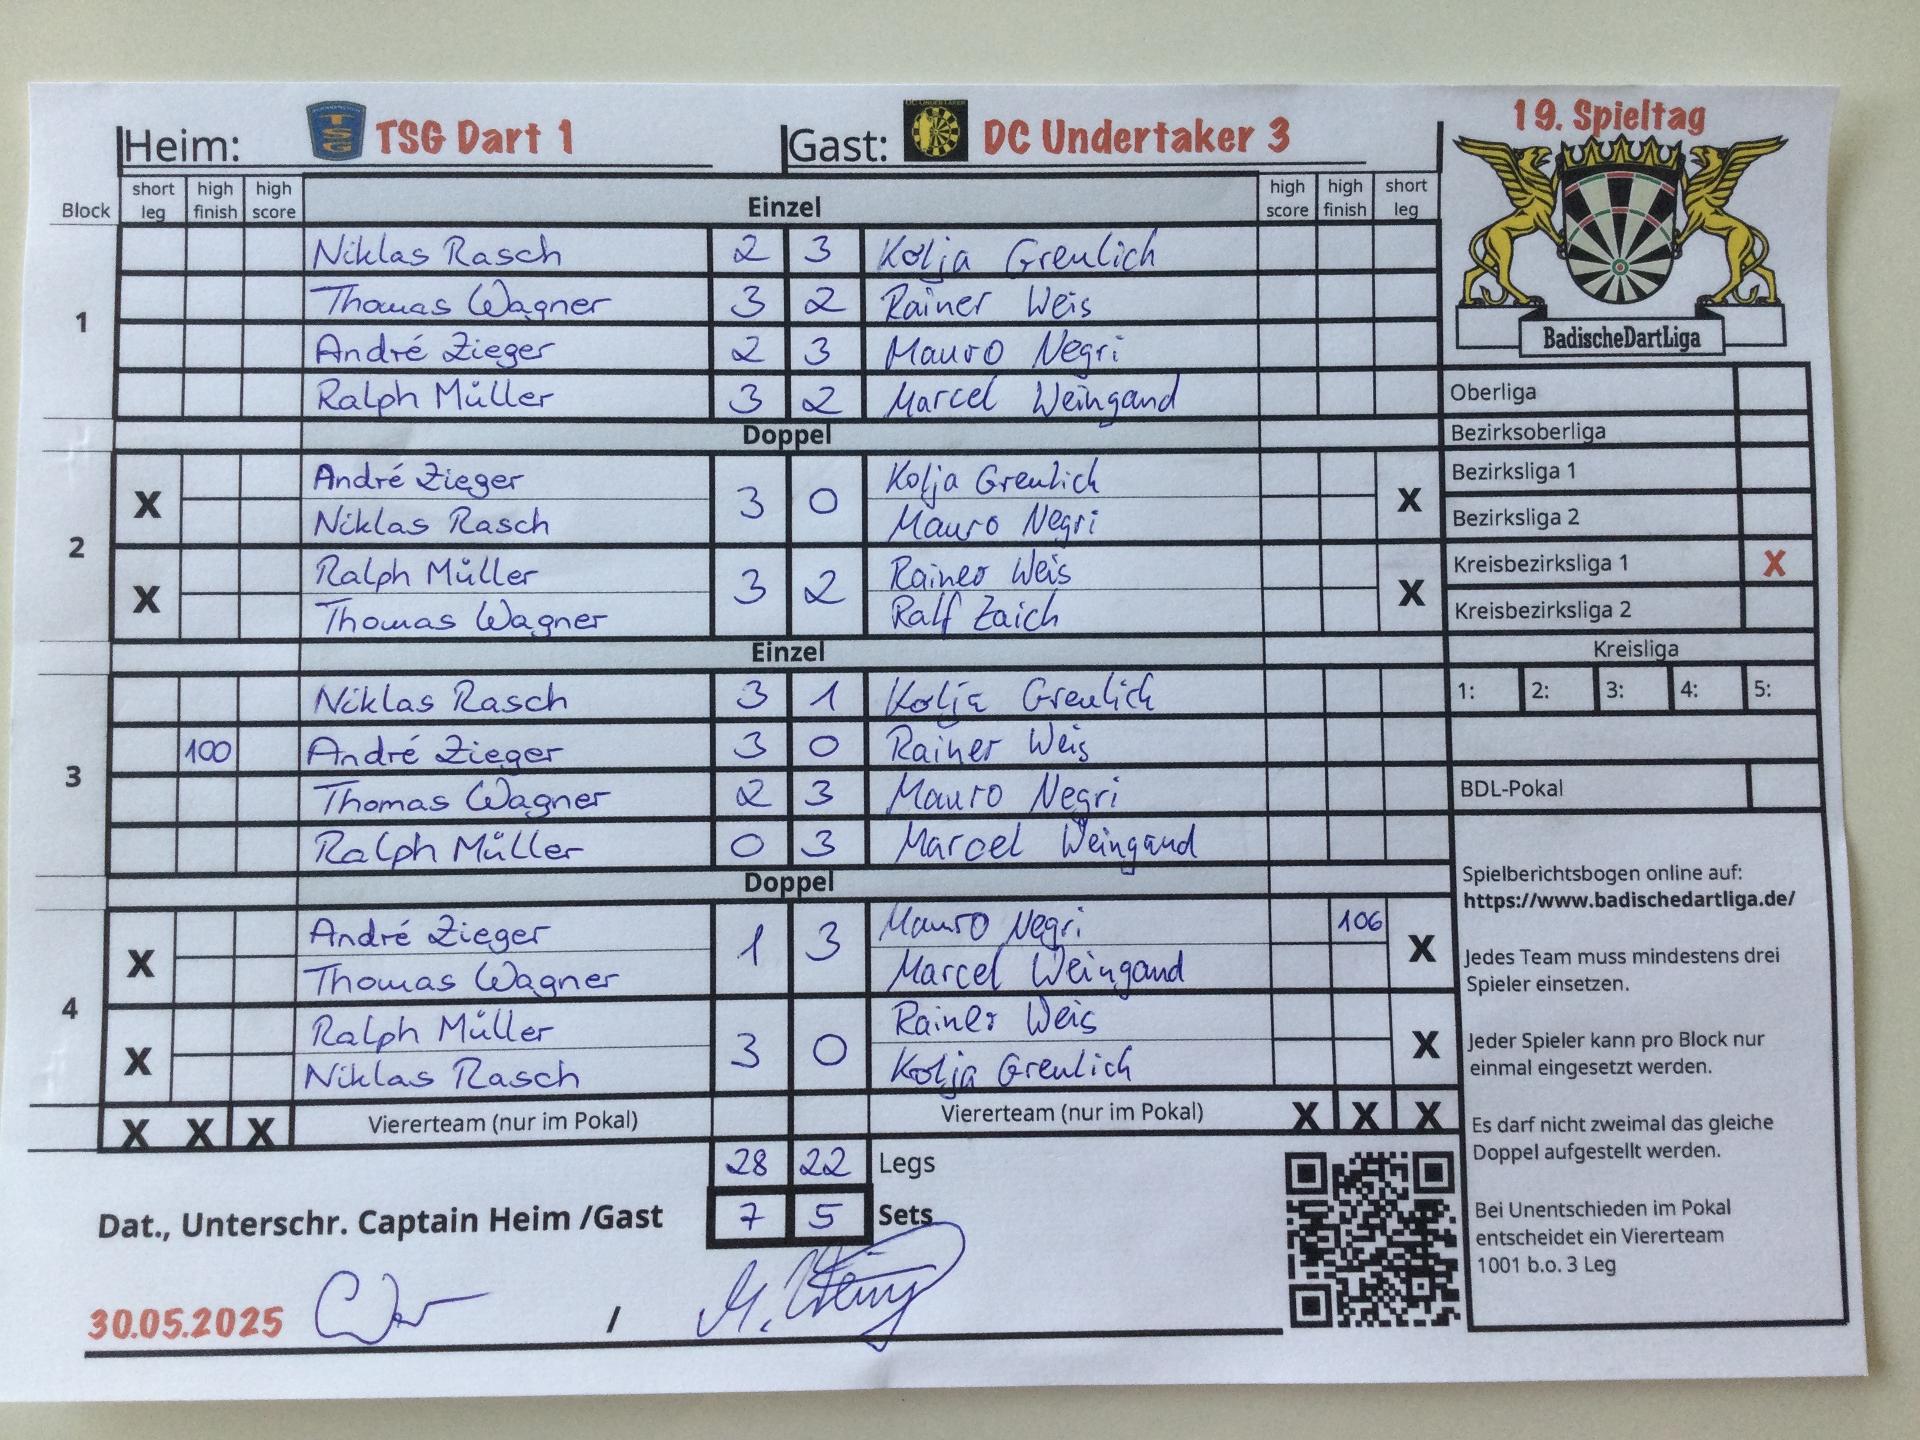 Heim: TSG TSG Dart 1 Gast: DC UNDERTAKER DC Undertaker 3 19. Spieltag
Block short leg high finish high score Einzel high score high finish short leg
1
Niklas Rasch 2 3 Kolja Greulich
Thomas Wagner 3 2 Rainer Weis
André Zieger 2 3 Mauro Negri
Ralph Müller 3 2 Marcel Weingand
Doppel
2
X André Zieger 3 0 Kolja Greulich X
Niklas Rasch Mauro Negri
X Ralph Müller 3 2 Rainer Weis X
Thomas Wagner Ralf Zaich
Einzel
3
Niklas Rasch 3 1 Kolja Greulich
100 André Zieger 3 0 Rainer Weis
Thomas Wagner 2 3 Mauro Negri
Ralph Müller 0 3 Marcel Weingand
Doppel
4
X André Zieger 1 3 Mauro Negri 106 X
Thomas Wagner Marcel Weingand
X Ralph Müller 3 0 Rainer Weis X
Niklas Rasch Kolja Greulich
X X X Viererteam (nur im Pokal) Viererteam (nur im Pokal) X X X
28 22 Legs
Dat., Unterschr. Captain Heim /Gast 7 5 Sets
30.05.2025 /
BadischeDartLiga
Oberliga
Bezirksoberliga
Bezirksliga 1
Bezirksliga 2
Kreisbezirksliga 1 X
Kreisbezirksliga 2
Kreisliga
1: 2: 3: 4: 5:
BDL-Pokal
Spielberichtsbogen online auf:
https://www.badischedartliga.de/
Jedes Team muss mindestens drei
Spieler einsetzen.
Jeder Spieler kann pro Block nur
einmal eingesetzt werden.
Es darf nicht zweimal das gleiche
Doppel aufgestellt werden.
Bei Unentschieden im Pokal
entscheidet ein Viererteam
1001 b.o. 3 Leg